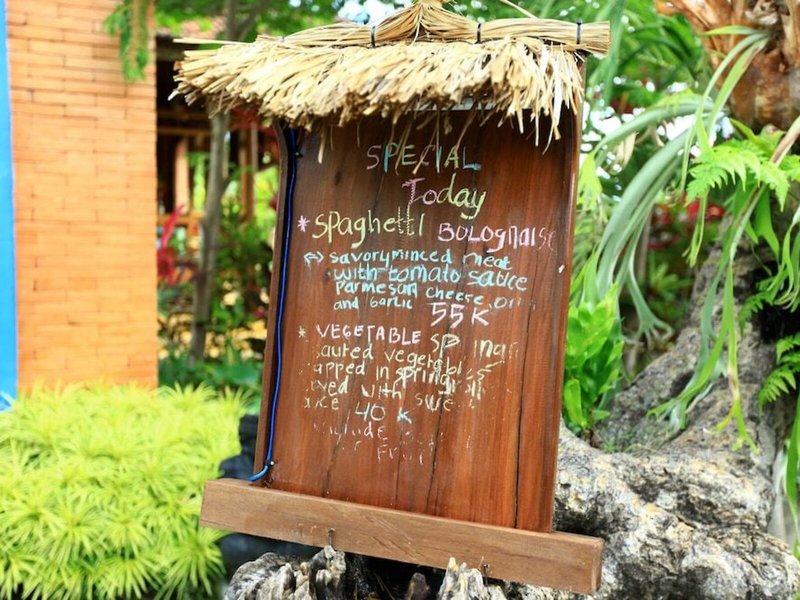 SPECIAL
Today
* spaghetti BOLOGNAISE
savory minced meat
with tomato sauce
Parmesan cheese, on
and Garlic 55 K
* VEGETABLE SP ING
auted vegetables
apped in springroll
ved with swee
ice 40 K
nclude
Fruit